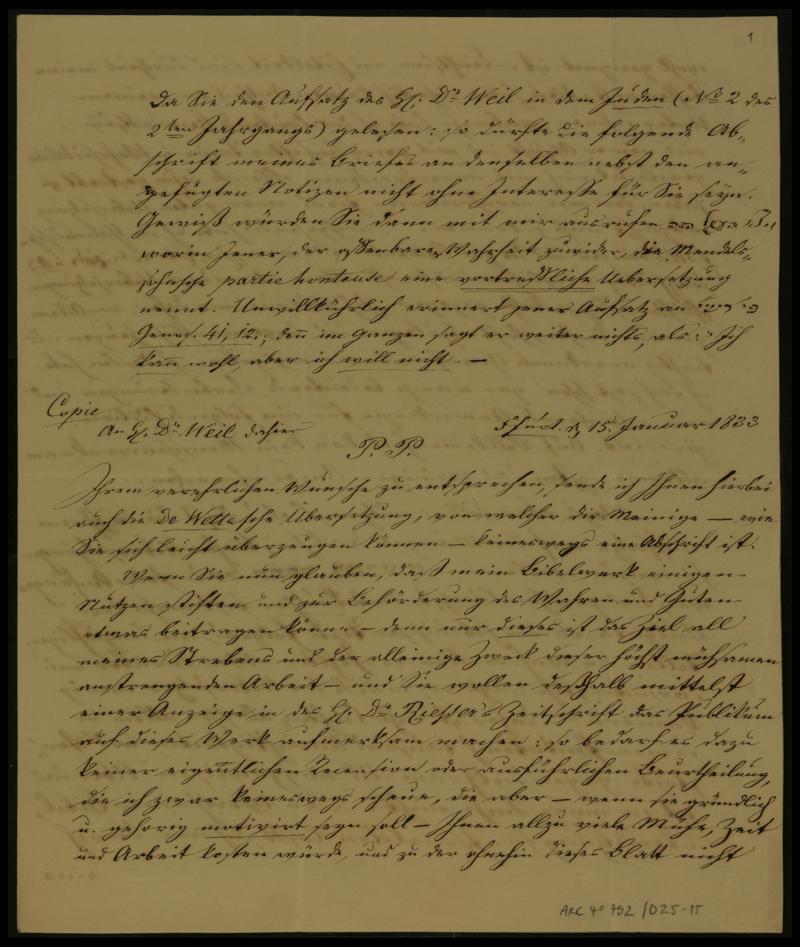 1
Da Sie den Aufsatz des H. Dr Weil in dem Juden (No 2 des
2ten Jahrgangs) gelesen: so dürfte die folgende Ab„
schrift meines Briefes an denselben nebst den an„
gefügten Notizen nicht ohne Interesse für Sie seyn.
Gewiß würden Sie dann mit mir ausrufen
worin Jener, der offenbaren Wahrheit zuwider, die Mendels„
sohnsche partie honteuse eine vortreffliche Uebersetzung
nennt. Unwillkührlich erinnert jener Aufsatz an
Genes. 41, 12.; den̅ im Ganzen sagt er weiter nichts, als: Ich
kan̅ wohl, aber ich will nicht. —
Copie
An H. Dr Weil dahier
Ffurt. d. 15. Januar 1833
P. P.
Ihrem verehrlichen Wunsche zu entsprechen, sende ich Ihnen hierbei
auch die De Wette'sche Übersetzung, von welcher die Meinige — wie
Sie sich leicht überzeugen können — keineswegs eine Abschrift ist.
Wenn Sie nun glauben, daß mein Bibelwerk einigen
Nutzen stiften und zur Beförderung des Wahren und Guten
etwas beitragen könne — denn nur dieses ist das Ziel all
meines Strebens und der alleinige Zweck dieser höchst mühsamen
anstrengenden Arbeit — und Sie wollen deßhalb mittelst
einer Anzeige in des H. Dr. Riesser's Zeitschrift das Publikum
auf dieses Werk aufmerksam machen: so bedarf es dazu
keiner eigentlichen Recension oder ausführlichen Beurtheilung,
die ich zwar keineswegs scheue, die aber — wenn sie gründlich
u. gehörig motivirt seyn soll — Ihnen allzu viele Mühe, Zeit
und Arbeit kosten würde, und zu der ohnehin dieses Blatt nicht
ARC 4° 792 /D25-15